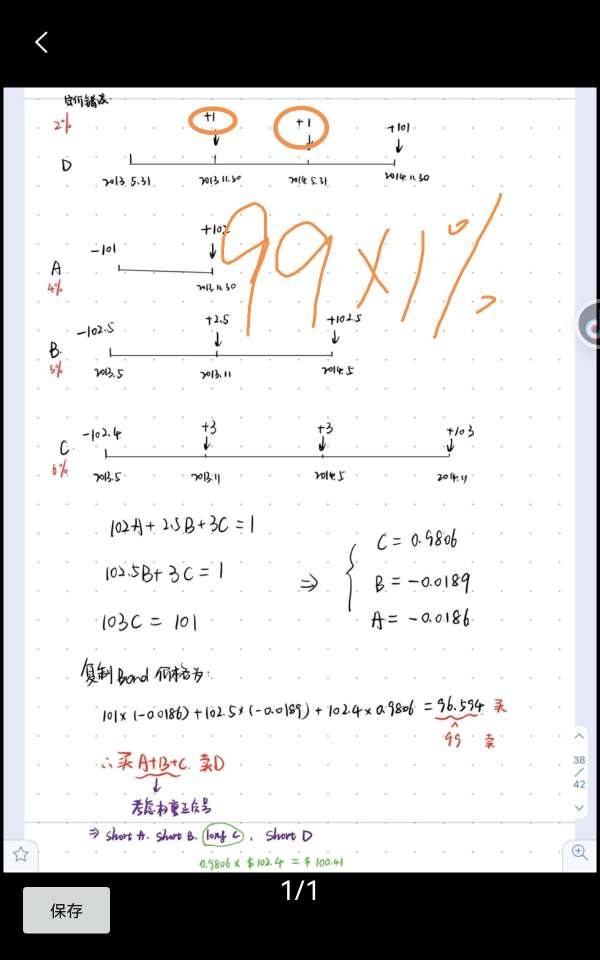 定价错误:
2%
+1
+1
+101
D
2013.5.31
2013.11.30
2014.5.31
2014.11.30
99×1%
-101
+102
A
4%
2013.11.30
-102.5
+2.5
+102.5
B.
5%
2013.5
2013.11
2014.5
-102.4
+3
+3
+103
C
6%
2013.5
2013.11
2014.5
2014.11
102A+2.5B+3C=1
102.5B+3C=1
103C=101
⇒
C=0.9806
B=-0.0189
A=-0.0186
复制Bond价格为:
101×(-0.0186)+102.5×(-0.0189)+102.4×0.9806=96.594 买
99 卖
∴买A+B+C. 卖D
考虑权重正负号
⇒ Short A. Short B. long C, Short D
0.9806 × $102.4 = $100.41
38
/
42
1/1
保存